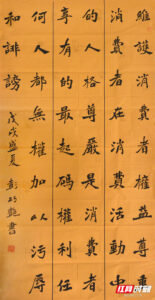 維護消費者權益尊重
消費者在消費活動中
的人格尊嚴是消費者
享有的最起碼權利任
何人都無權加以污辱
和誹謗
戊戌盛夏 彭巧艷書
红网时刻